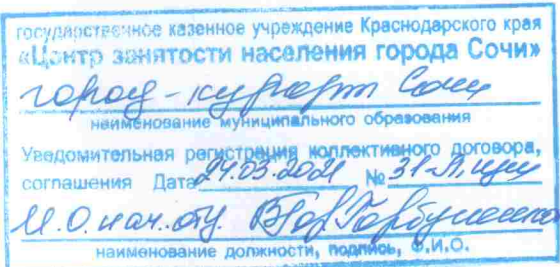 государственное казенное учреждение Краснодарского края
«Центр занятости населения города Сочи»
город-курорт Сочи
наименование муниципального образования
Уведомительная регистрация коллективного договора,
соглашения Дата 24.03.2021 № 31-Л.
И.О. нач. отд.
наименование должности, подпись, Ф.И.О.